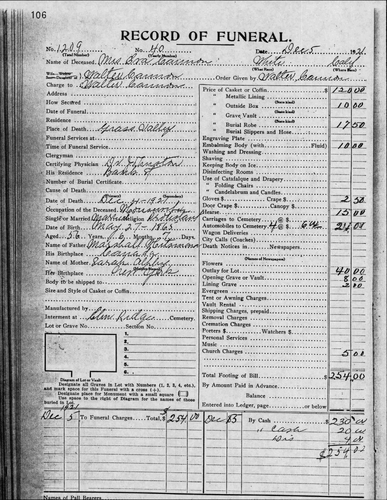 106
RECORD OF FUNERAL.
No. 1209 No. 40 Date Dec 5 1921
(Total Number) (Yearly Number)
Name of Deceased Mrs Eva Cannon White Cauf
(What Race)
Walter Cannon Order Given by Walter Cannon
Charge to Walter Cannon
Address
How Secured
Date of Funeral
Residence
Place of Death Grass Valley
Funeral Services at
Time of Funeral Service
Clergyman
Certifying Physician
His Residence
Number of Burial Certificate
Cause of Death
Date of Death Dec 4-1921
Occupation of the Deceased Housewife
Single or Married Married Religion
Date of Birth May 27-1865
Aged 56 Years 6 Months 7 Days
Name of Father Marshall
His Birthplace Canada
Name of Mother Sarah
Her Birthplace New York
Body to be shipped to
Size and Style of Casket or Coffin
Manufactured by
Interment at Elm Ridge Cemetery
Lot or Grave No. Section No.
1.
2.
3.
4.
5.
6.
Diagram of Lot or Vault
Designate all Graves in Lot with Numbers (1, 2, 3, 4, etc.) and mark space for this Funeral with a cross (+).
Designate place for Monument with a small square
Use space to the right of Diagram for the names of those buried in Lot.
Price of Casket or Coffin $ 120 00
" Metallic Lining
" Outside Box 10 00
" Grave Vault
" Burial Robe 17 50
" Burial Slippers and Hose
Engraving Plate
Embalming Body (with Fluid) 10 00
Washing and Dressing
Shaving
Keeping Body on Ice
Disinfecting Rooms
Use of Catafalque and Drapery
" Folding Chairs
" Candelabrum and Candles
Gloves $ Crape $ 2 50
Door Crape $ Canopy $
Hearse 15 00
Carriages to Cemetery @ $
Automobiles to Cemetery 4 @ $ 6 24 00
Wagon Deliveries
City Calls (Coaches)
Death Notices in Newspapers
Flowers
Outlay for Lot 40 00
Opening Grave or Vault 8 00
Lining Grave 2 00
Evergreen
Tent or Awning Charges
Vault Rental
Shipping Charges, prepaid
Removal Charges
Cremation Charges
Porters $ Watchers $
Personal Services
Music
Church Charges 5 00
Total Footing of Bill $ 254 00
By Amount Paid in Advance
Balance
Entered into Ledger, page or below.
1921
Dec 5 To Funeral Charges Total, $ 254 00 Dec 5 By Cash $ 230 00
" Cash 20 00
Dis 4 00
$ 254 00
Names of Pall Bearers